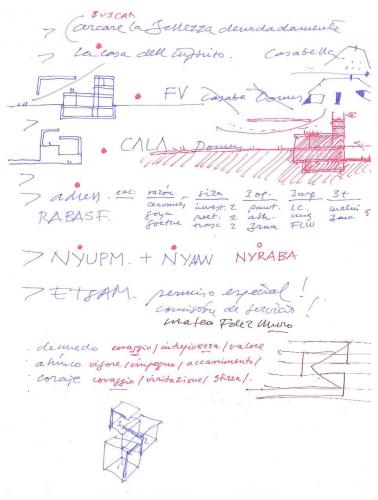 BUSCAR
> (cercare la Bellezza denodadamente
> La casa dell'infinito. Casabella
> FV Casabe Domus
> CALA Domus
> adien. exc. razón siza Jap. Jarq 3+
cervantes invest. 2 paint. LC.
RABASF. goya poet. 2
goethe trasc 2 FLW 5
> NYUPM. + NYAAN NYRABA
> ETSAM. permiso especial!
comisión de servicio!
denuedo coraggio/intrepidezza/valore
ahínco vigore/impegno/accanimento/
coraje coraggio/irritazione/stizza/.
1 2 3